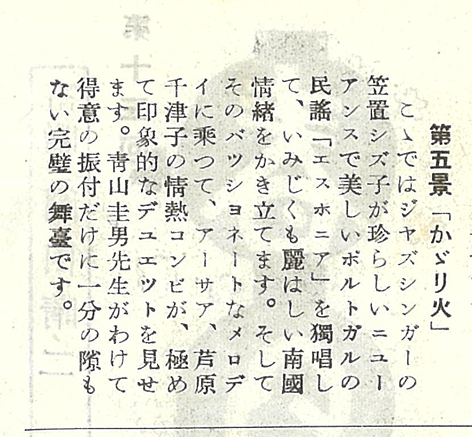 第五景「かゞり火」
こゝではジヤズシンガーの
笠置シズ子が珍らしいニユー
アンスで美しいポルトガルの
民謡「エスホニア」を獨唱し
て、いみじくも麗はしい南國
情緒をかき立てます。そして
そのパツシヨネートなメロデ
イに乘つて、アーサア、芦原
千津子の情熱コンビが、極め
て印象的なデユエツトを見せ
ます。青山圭男先生がわけて
得意の振付だけに一分の隙も
ない完璧の舞臺です。